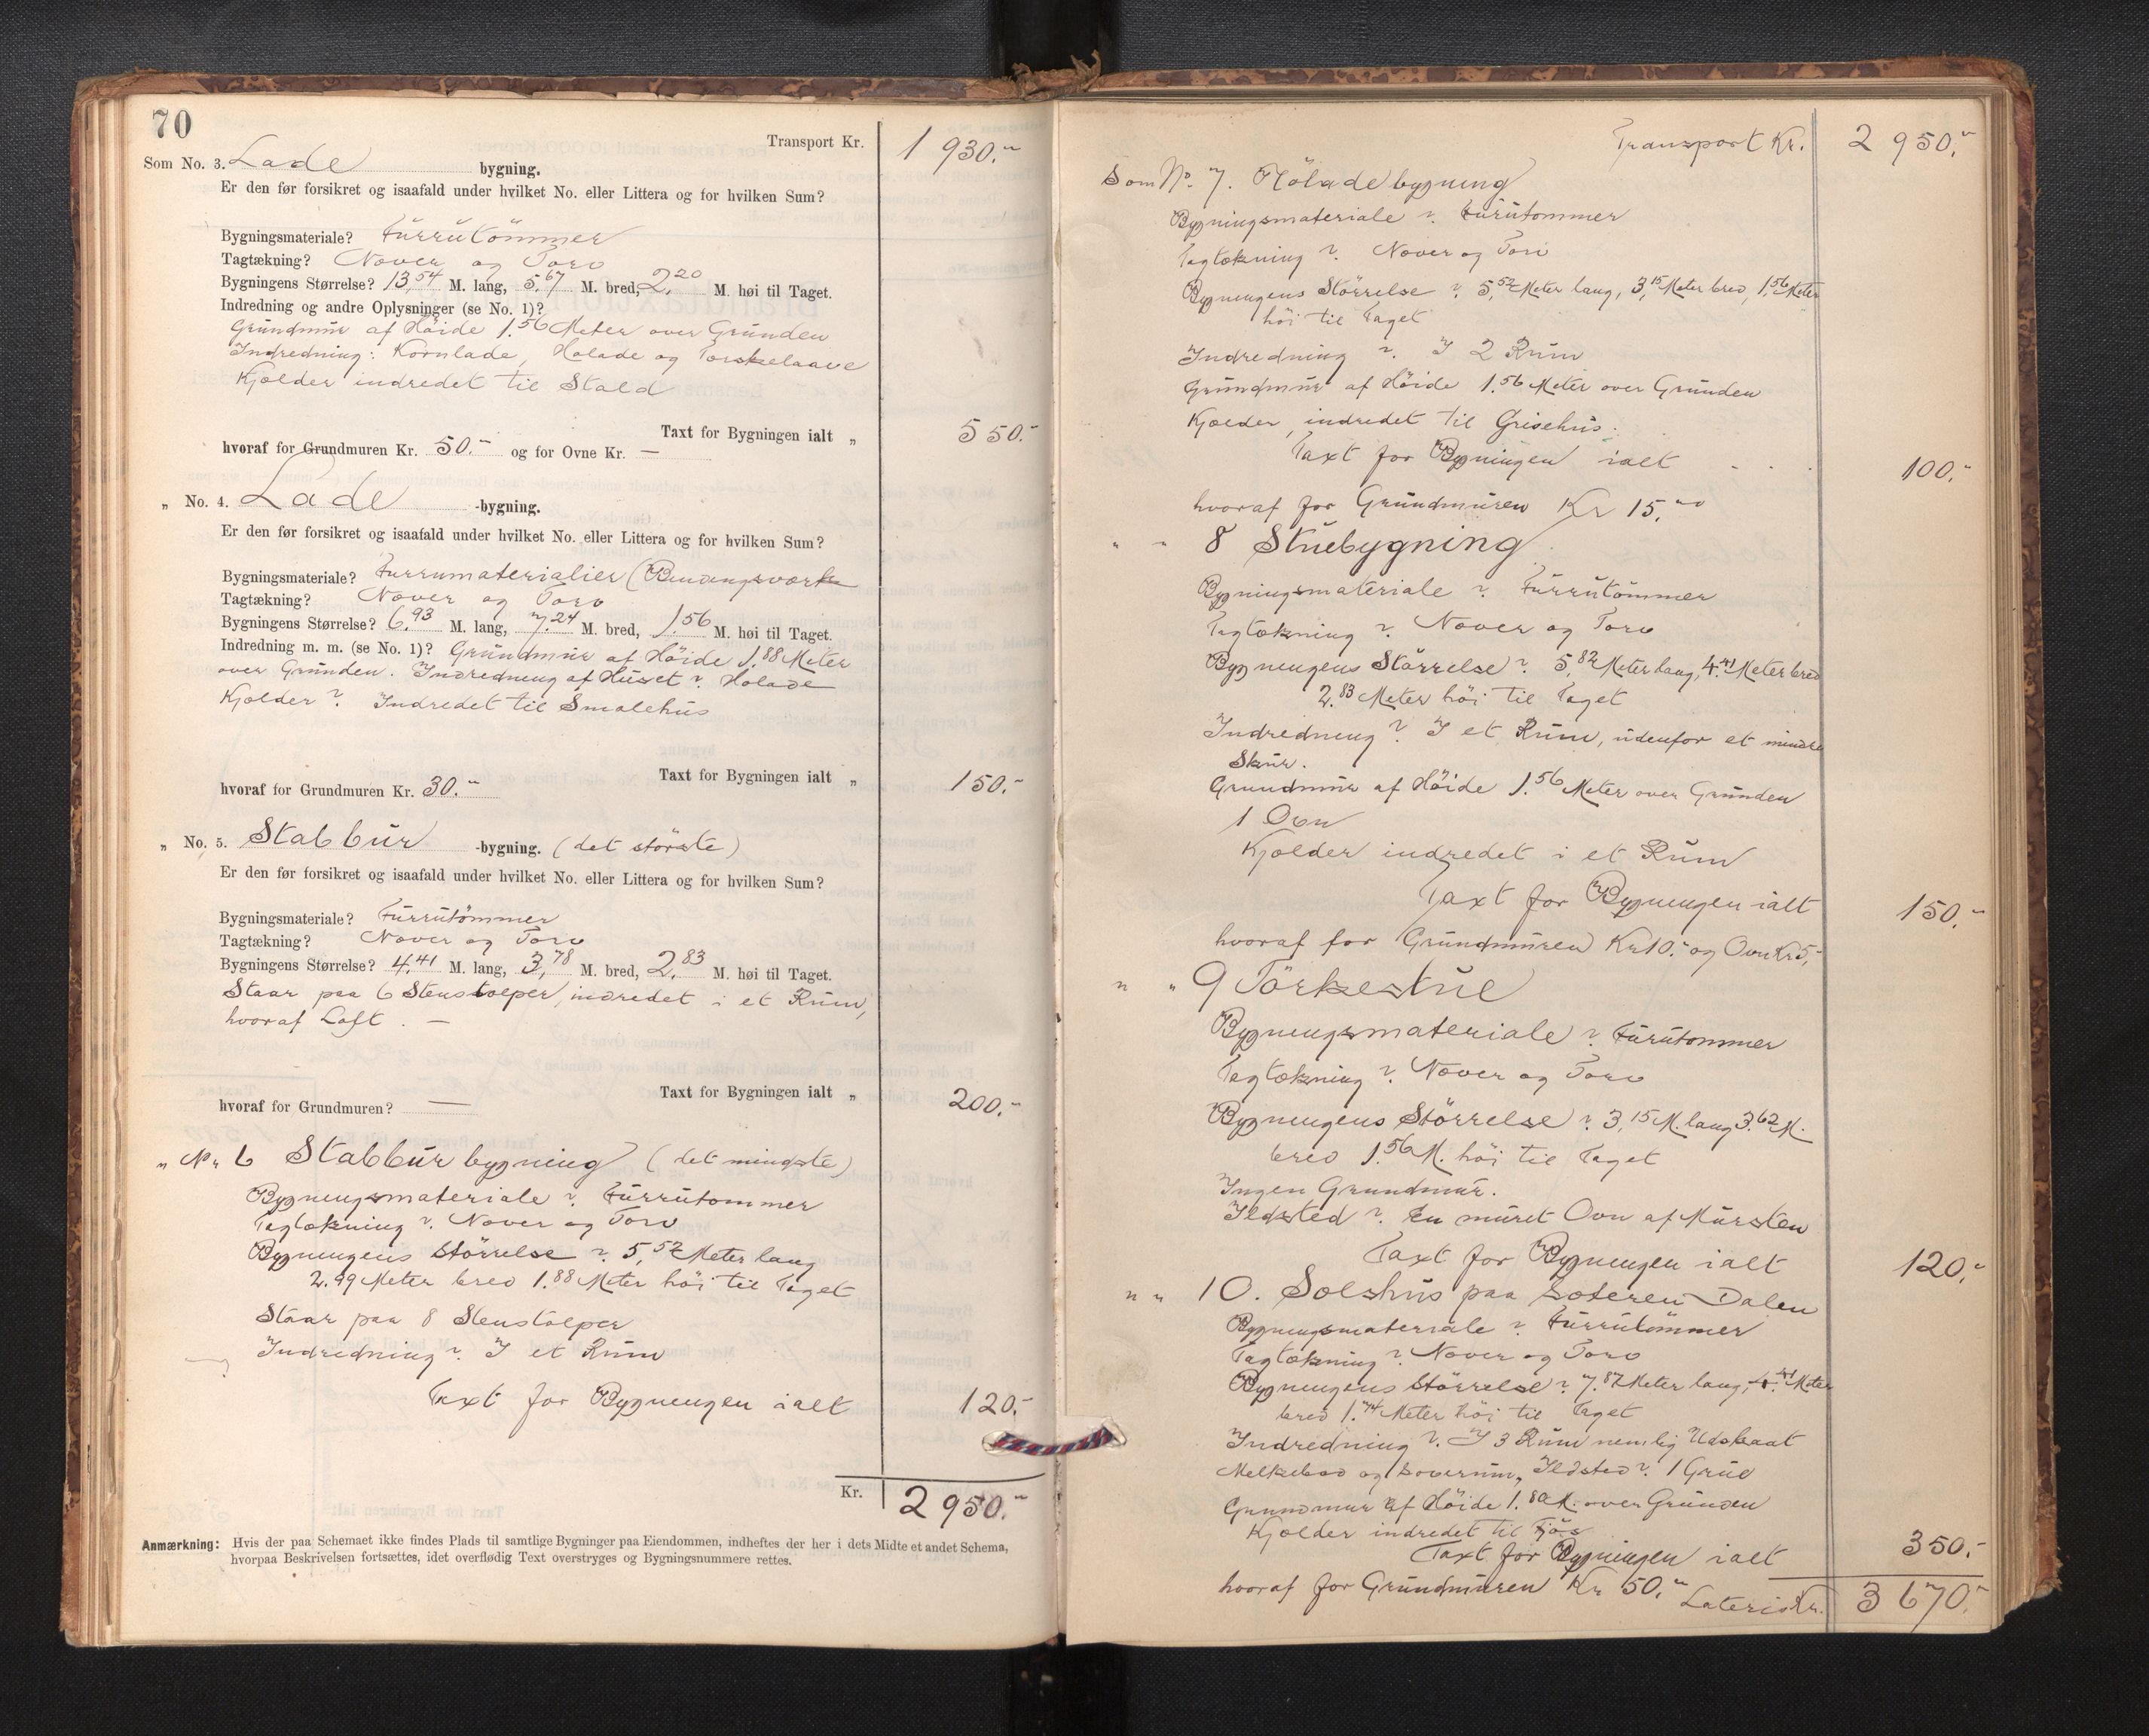 70
Transport Kr. 1 930.-
Som No. 3. Lade bygning.
Er den før forsikret og isaafald under hvilket No. eller Littera og for hvilken Sum?
Bygningsmateriale? Furrutömmer
Tagtækning? Næver og Torv
Bygningens Størrelse? 13,54 M. lang, 5,67 M. bred, 2,20 M. høi til Taget.
Indredning og andre Oplysninger (se No. 1)?
Grundmur af Höide 1.56 Meter over Grunden
Indredning: Kornlade, Hølade og Torskelaave
Kjælder indredet til Stald
Taxt for Bygningen ialt „ 550.-
hvoraf for Grundmuren Kr. 50.- og for Ovne Kr. —
„ No. 4. Lade -bygning.
Er den før forsikret og isaafald under hvilket No. eller Littera og for hvilken Sum?
Bygningsmateriale? Furrumaterialier (Bindingsværk
Tagtækning? Næver og Torv
Bygningens Størrelse? 6.93 M. lang, 7.24 M. bred, 1.56 M. høi til Taget.
Indredning m. m. (se No. 1)? Grundmur af Höide 1.88 Meter
over Grunden. Indredning af Huset? Hølade
Kjælder? Indredet til Smalehus
Taxt for Bygningen ialt „ 150.-
hvoraf for Grundmuren Kr. 30.-
„ No. 5. Stabbur -bygning. (det störste)
Er den før forsikret og isaafald under hvilket No. eller Littera og for hvilken Sum?
Bygningsmateriale? Furrutömmer
Tagtækning? Næver og Torv
Bygningens Størrelse? 4.41 M. lang, 3,78 M. bred, 2.83 M. høi til Taget.
Staar paa 6 Stenstolper, indredet i et Rum,
hvoraf Loft. —
Taxt for Bygningen ialt „ 200.-
hvoraf for Grundmuren? —
„ No 6 Stabbur bygning (det mindste)
Bygningsmateriale? Furrutommer
Tagtækning? Næver og Torv
Bygningens Störrelse? 5,52 Meter lang
2.99 Meter bred 1.88 Meter höi til Taget
Staar paa 8 Stenstolper
Indredning? I et Rum
Taxt for Bygningen ialt 120.-
Kr. 2 950.-
Anmærkning: Hvis der paa Schemaet ikke findes Plads til samtlige Bygninger paa Eiendommen, indheftes der her i dets Midte et andet Schema,
hvorpaa Beskrivelsen fortsættes, idet overflødig Text overstryges og Bygningsnummere rettes.
Transport Kr. 2 950.-
Som No. 7. Hölade bygning
Bygningsmateriale? Furutommer
Tagtækning? Næver og Torv
Bygningens Störrelse? 5,52 Meter lang, 3,15 Meter bred, 1,56 Meter
höi til Taget
Indredning? I 2 Rum
Grundmur af Höide 1.56 Meter over Grunden
Kjælder, indredet til Grisehus.
Taxt for Bygningen ialt . . . 100.-
hvoraf for Grundmuren Kr 15.-
„ „ 8 Stuebygning
Bygningsmateriale? Furrutömmer
Tagtækning? Næver og Torv
Bygningens Störrelse? 5,82 Meter lang, 4.41 Meter bred
2.83 Meter höi til Taget
Indredning? I et Rum, udenfor et mindre
Skur.
Grundmur af Höide 1.56 Meter over Grunden
1 Ovn
Kjælder indredet i et Rum
Taxt for Bygningen ialt 150.-
hvoraf for Grundmuren Kr 10.- og Ovn Kr 5,-
„ „ 9 Törkestue
Bygningsmateriale? Furutommer
Tagtækning? Næver og Torv
Bygningens Störrelse? 3,15 M. lang 3.62 M.
bred 1.56 M. höi til Taget
Ingen Grundmur.
Ildsted? En muret Ovn af Mursten
Taxt for Bygningen ialt 120.-
„ „ 10. Selshus paa Sæteren Dalen
Bygningsmateriale? Furrutömmer
Tagtækning? Næver og Torv
Bygningens Störrelse? 7.87 Meter lang, 4.41 Meter
bred 1.74 Meter höi til Taget
Indredning? I 3 Rum nemlig Udskaat
Melkebod og Soverum, Ildsted? 1 Grue
Grundmur af Höide 1.80 M. over Grunden
Kjælder indredet til Fjös
Taxt for Bygningen ialt 350.-
hvoraf for Grundmuren Kr 50.-
Lateris Kr. 3 670.-